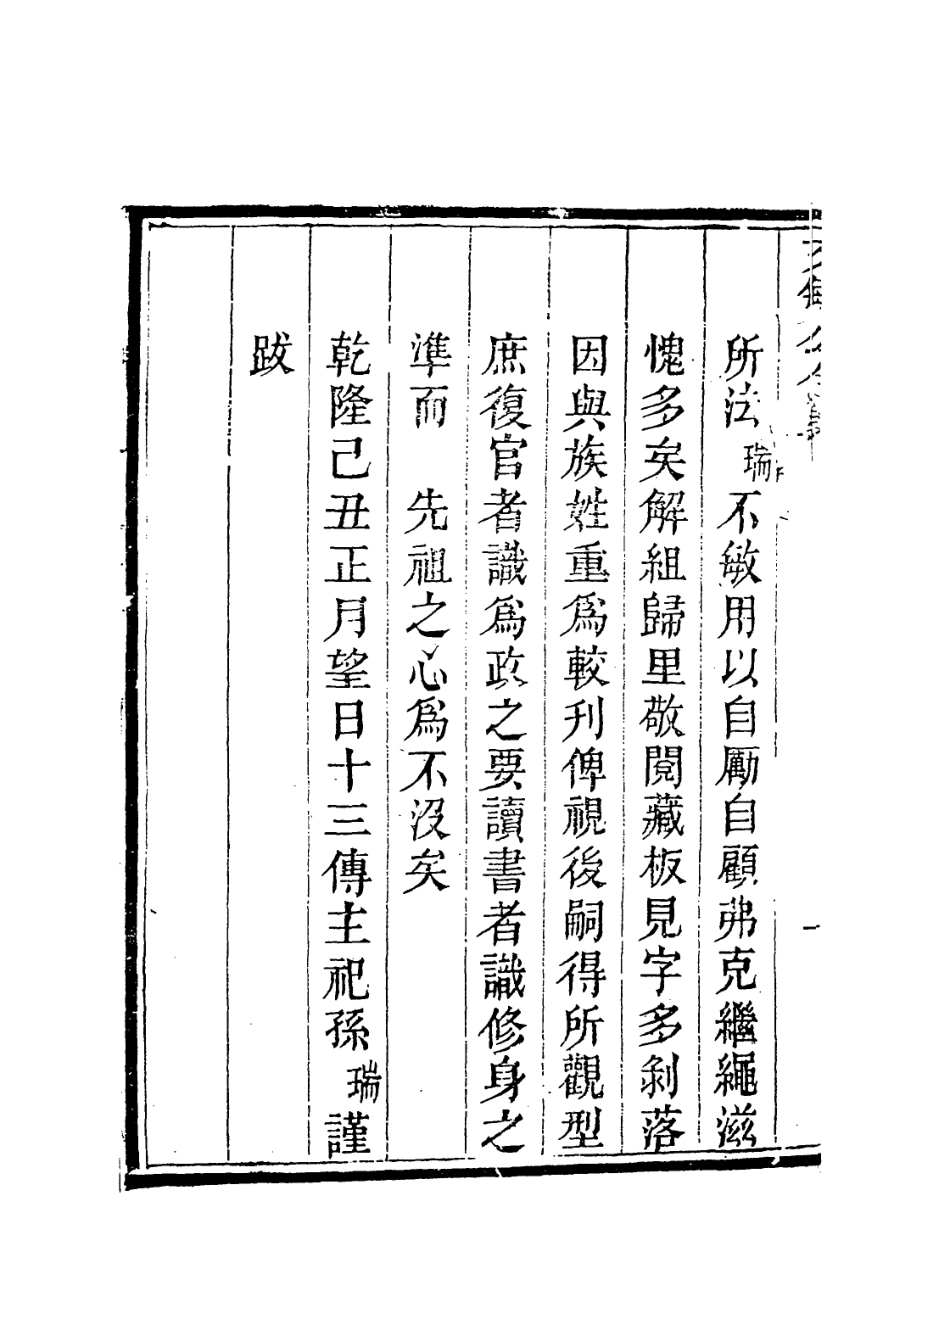 所法瑞不敏用以自勵自顧弗克繼繩滋
愧多矣解組歸里敬閱藏板見字多剝落
因與族姓重爲較刋俾視後嗣得所觀型
庶復官者識爲政之要讀書者識修身之
準而　先祖之心爲不沒矣
乾隆己丑正月望日十三傳主祀孫瑞謹
跋